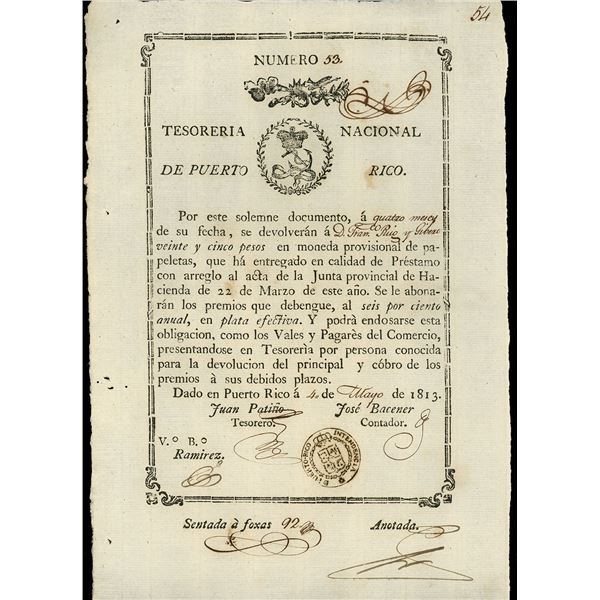 54
NUMERO 53.
TESORERIA NACIONAL
DE PUERTO RICO.
Por este solemne documento, á quatro meses
de su fecha, se devolverán á D. Fran.co Puig y
veinte y cinco pesos en moneda provisional de pa-
peletas, que há entregado en calidad de Préstamo
con arreglo al acta de la Junta provincial de Ha-
cienda de 22 de Marzo de este año. Se le abona-
rán los premios que debengue, al seis por ciento
anual, en plata efectiva. Y podrá endosarse esta
obligacion, como los Vales y Pagarès del Comercio,
presentandose en Tesorerìa por persona conocida
para la devolucion del principal y cóbro de los
premios à sus debidos plazos.
Dado en Puerto Rico á 4 de Mayo de 1813.
Juan Patiño José Bacener
Tesorero. Contador.
V.º B.º
Ramirez.
INTENDENCIA PUERTO-RICO
Sentada à foxas 92 Anotada.